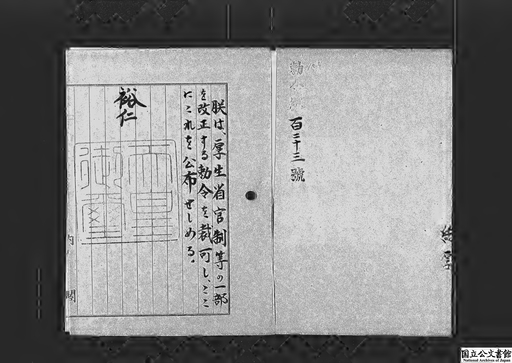 勅令
百二十三號
朕は、厚生省官制等の一部
を改正する勅令を裁可し、ここ
にこれを公布せしめる。
裕仁
天皇
御璽
内閣
国立公文書館
National Archives of Japan